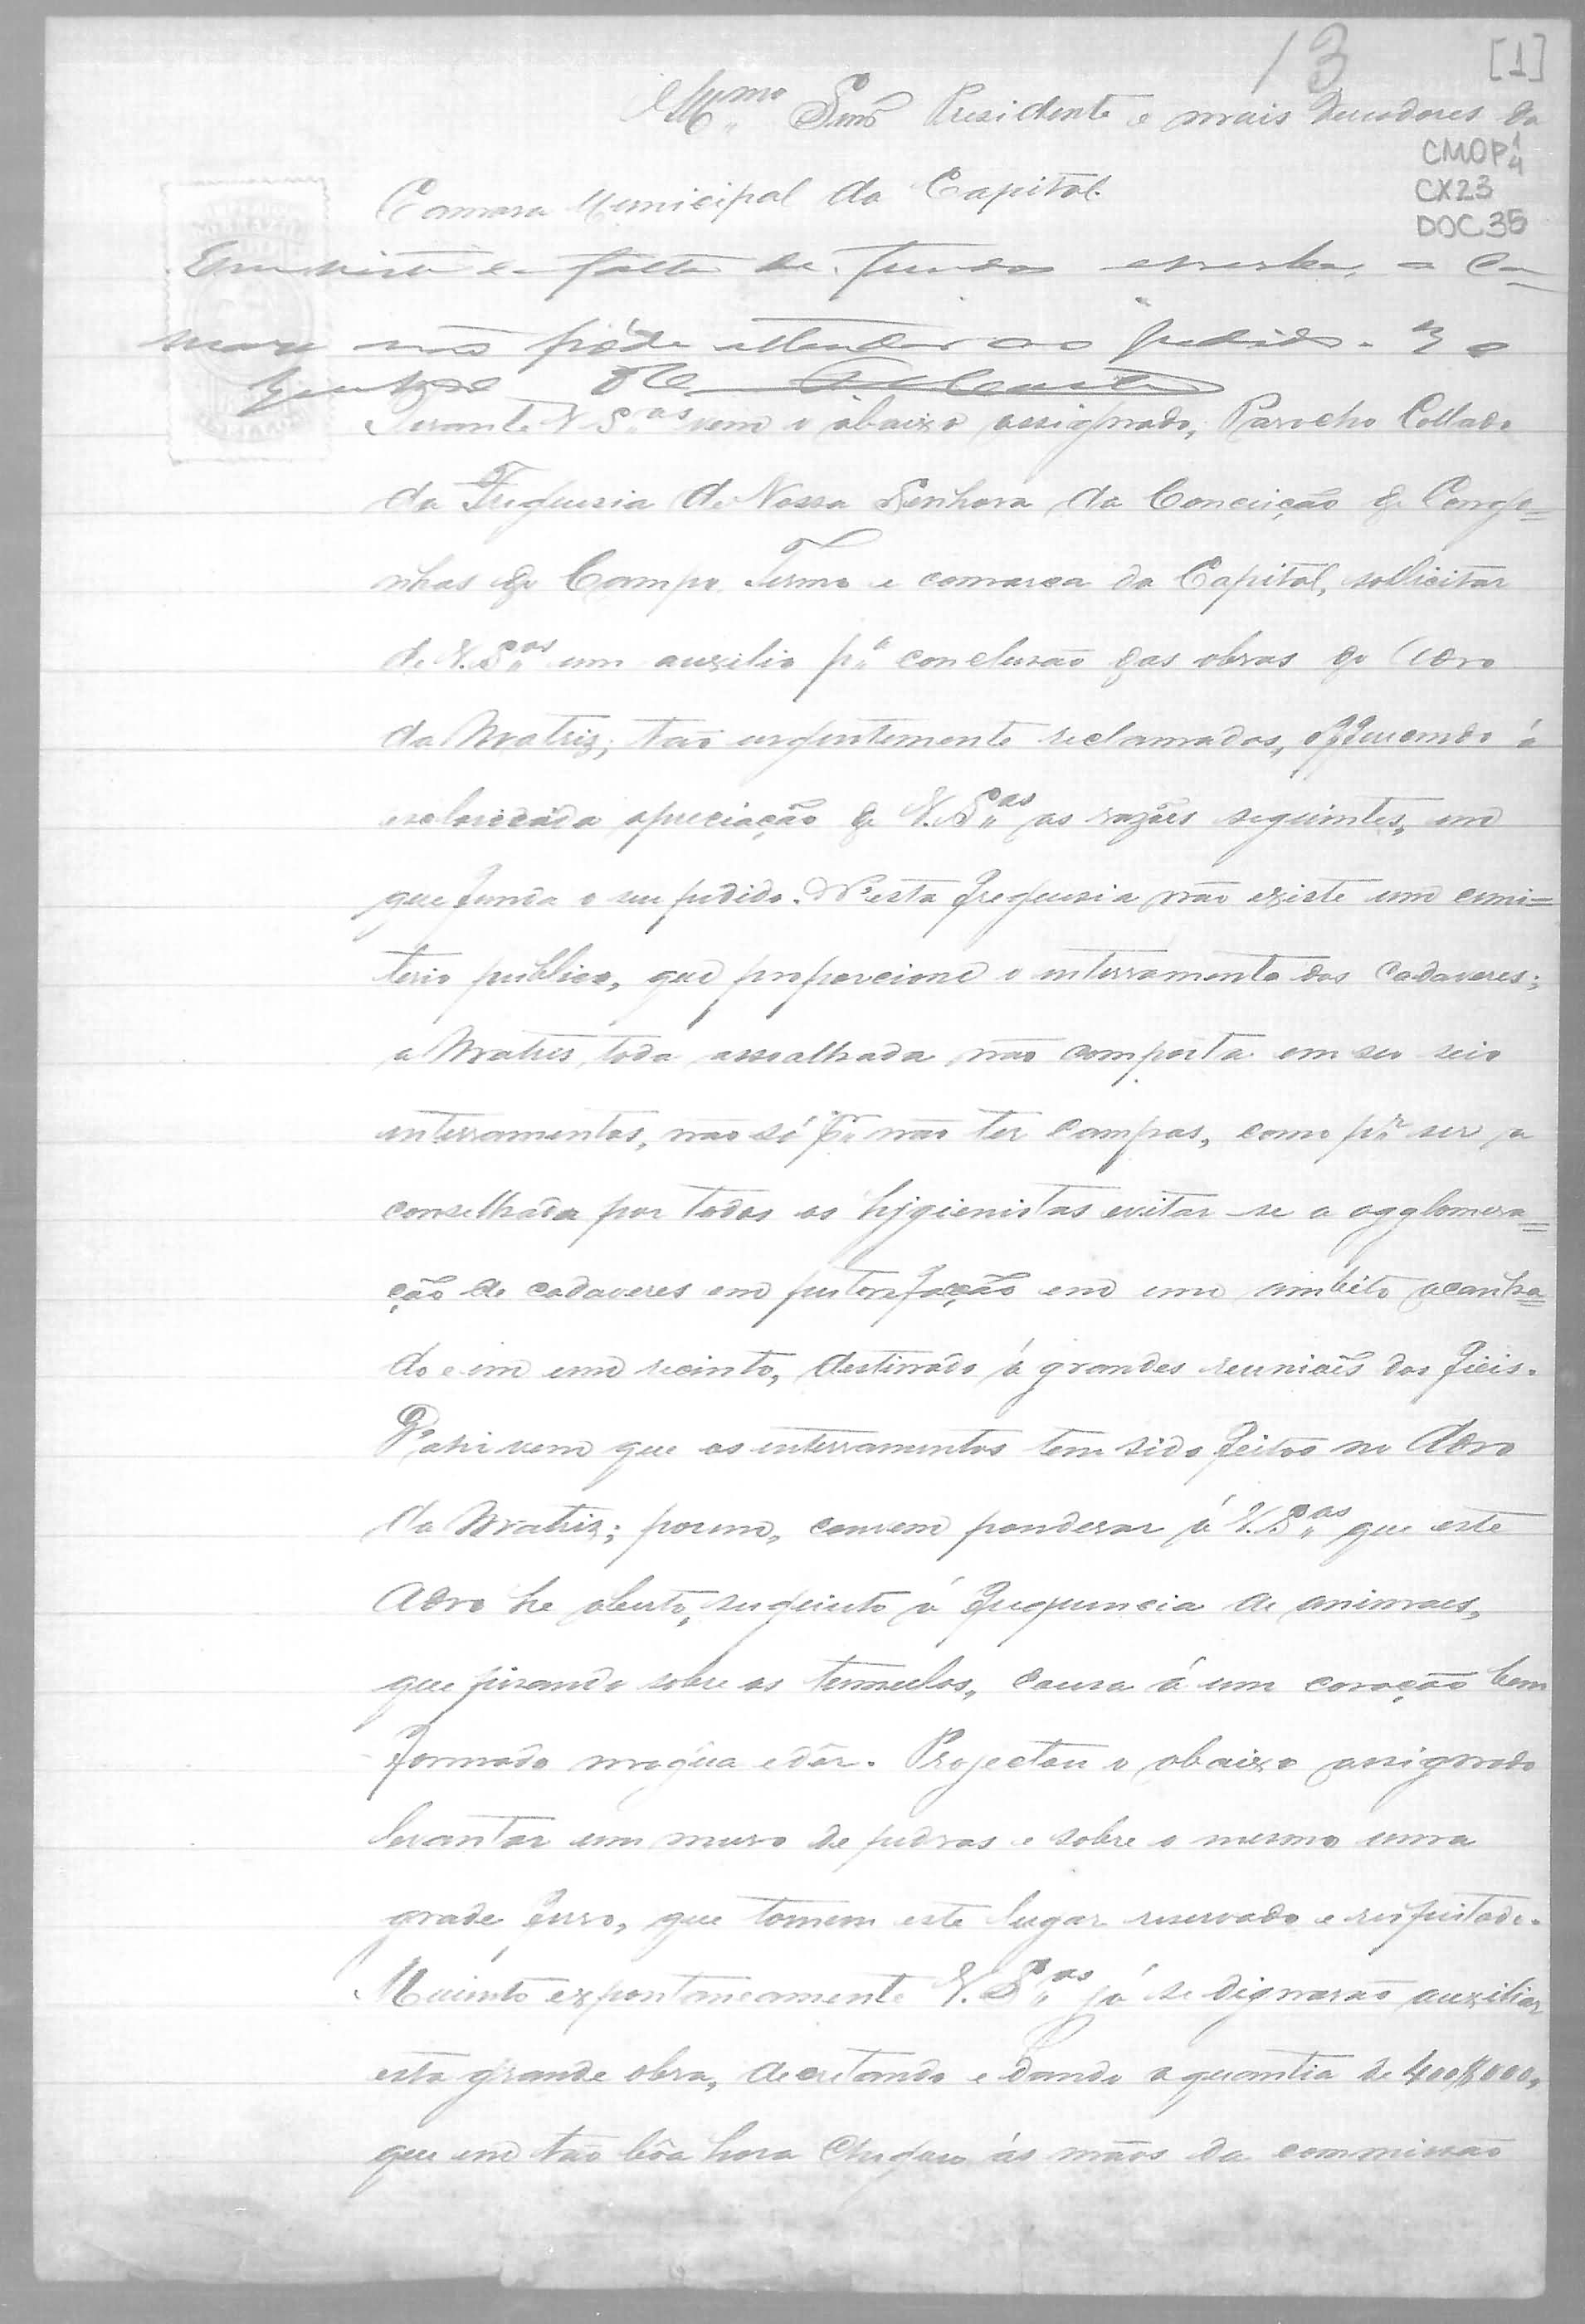 13
[1]
Illmo Snrs Presidente e mais Vereadores da
CMOP 1/4
CX23
DOC.35
Camara Municipal da Capital.
Em vista a falta de fundos a Ca-
mara não póde attender ao pedido.
Perante V. S.as vem o abaixo assignado, Parocho Collado
da Freguesia de Nossa Senhora da Conceição de Congo=
nhas do Campo Termo e comarca da Capital, sollicitar
de V. S.as um auxilio p.a conclusão das obras do Adro
da Matriz, tão urgentemente reclamadas, offerecendo á
esclarecida apreciação de V. S.as as razões seguintes, em
que funda o seu pedido. N'esta freguesia não existe um cemi=
terio publico, que proporcione o enterramento dos cadaveres;
a Matriz toda assoalhada não comporta em seu seio
enterramentos, não só p.r não ter campas, como p.r ser a
conselhada por todos os hygienistas evitar-se a agglomera=
ção de cadaveres em putrefacção em um ambito acanha=
do e em um recinto, destinado á grandes reuniões dos fieis.
D'ahi vem que os enterramentos tem sido feitos no Adro
da Matriz; porem, convem ponderar á V. S.as que este
Adro he aberto, sugeito á frequencia de animaes,
que pisando sobre os tumulos, causa á um coração bem
formado magua e dôr. Projectou o abaixo assignado
levantar um muro de pedras e sobre o mesmo uma
grade ferro, que tornem este lugar reservado e respeitado.
Muinto expontaneamente V. S.as já se dignarão auxiliar
esta grande obra, decretando e dando a quantia de 400$000,
que em tão bôa hora chegou ás mãos da commissão